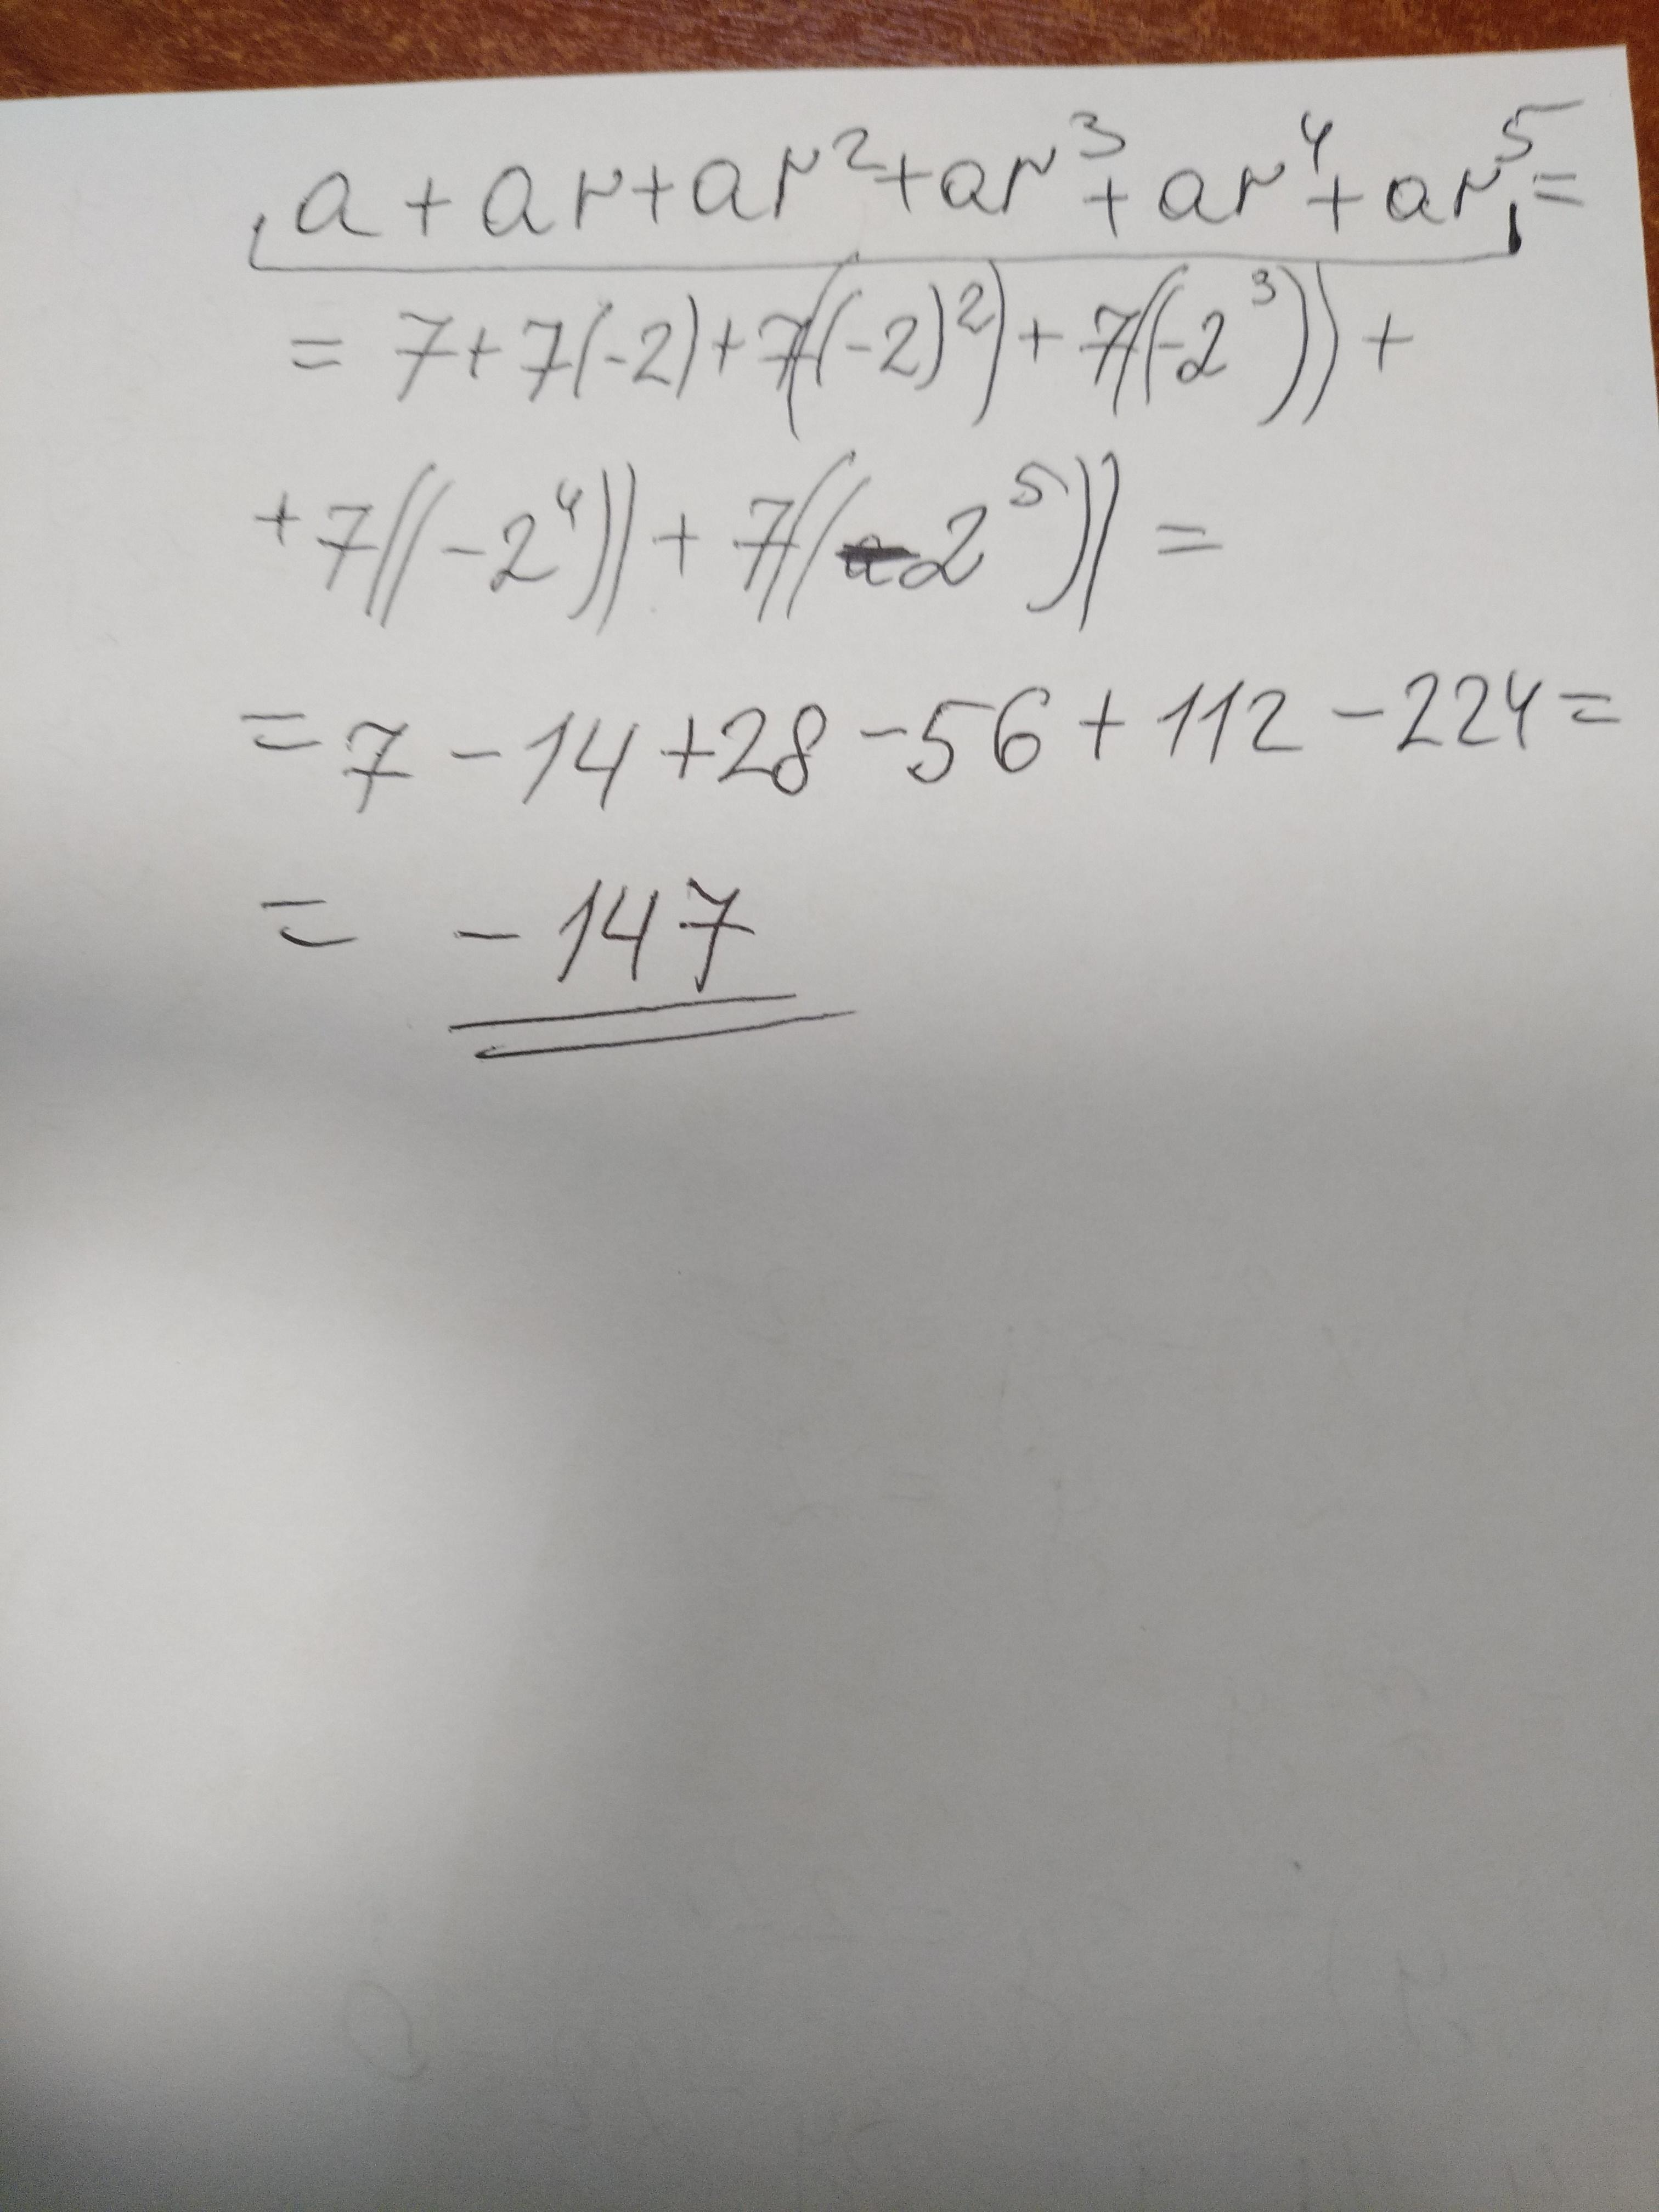 a + ar + ar² + ar³ + ar⁴ + ar⁵ =
= 7 + 7(-2) + 7((-2)²) + 7((-2³)) +
+ 7((-2⁴)) + 7((-2⁵)) =
= 7 - 14 + 28 - 56 + 112 - 224 =
= - 147